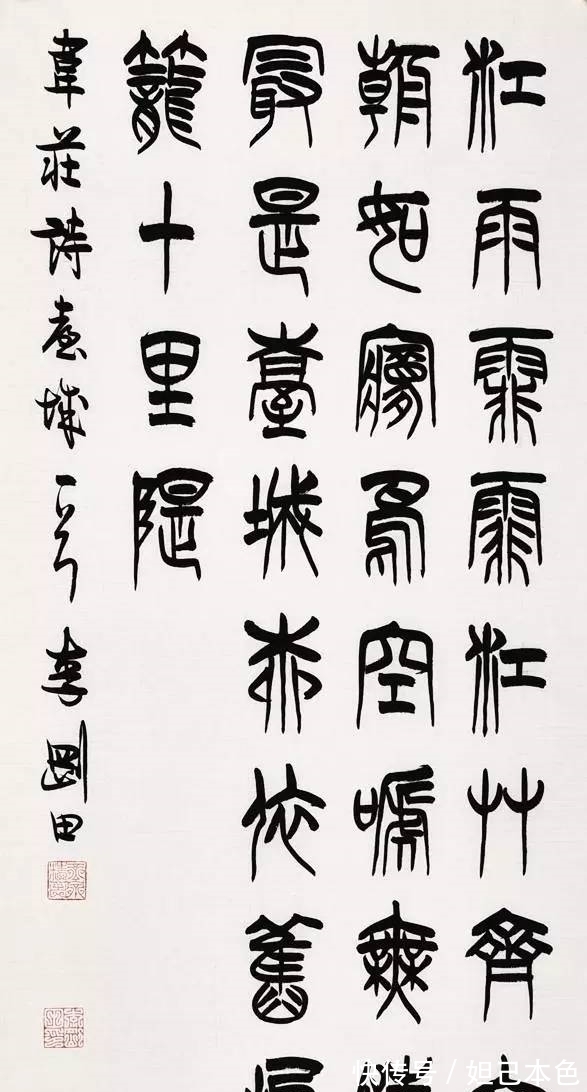 江雨霏霏江艸齊
朝如夢鳥空嗁無
最是臺城柳依舊
籠十里隄
韋莊詩臺城一首 李剛田
快传号 / 妲己本色